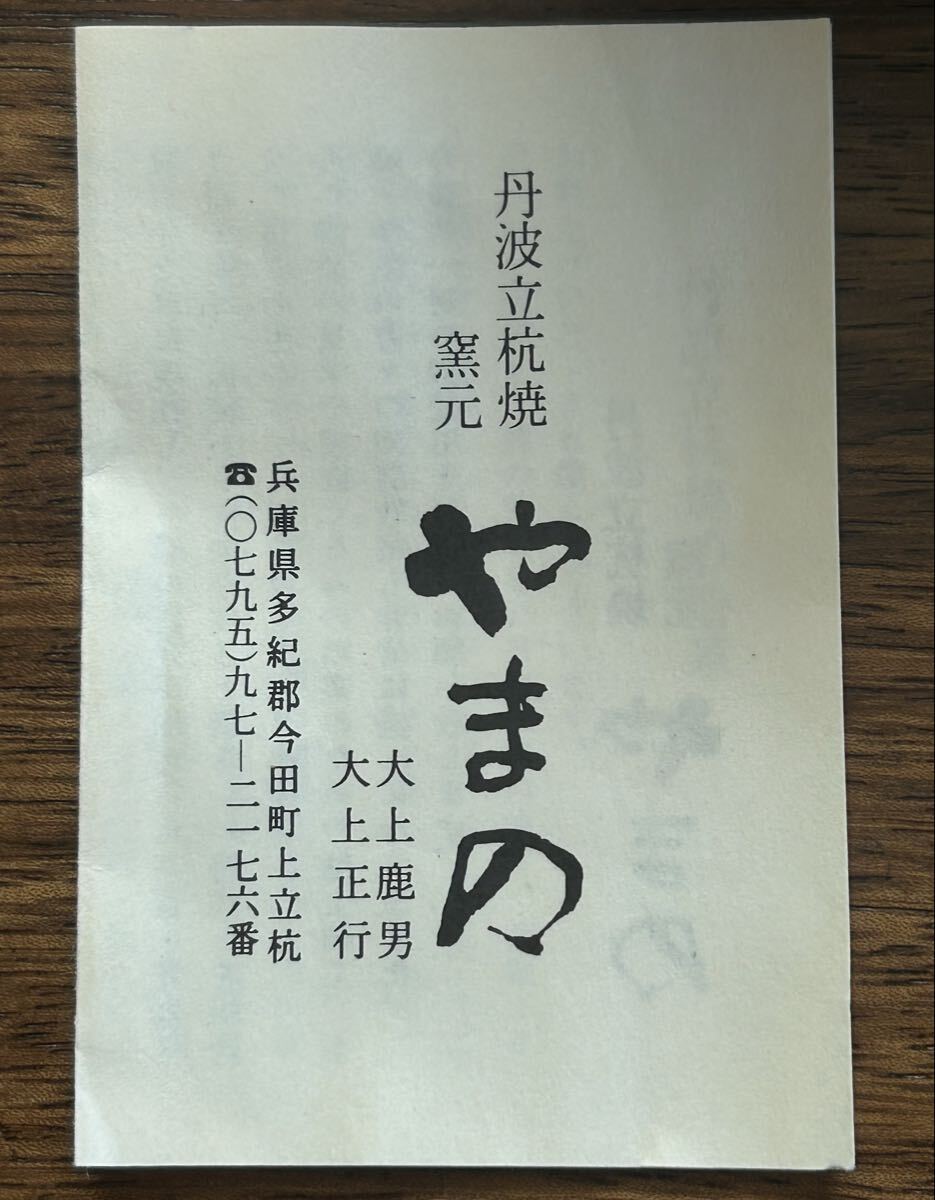 丹波立杭焼
窯元
やまの
大上鹿男
大上正行
兵庫県多紀郡今田町上立杭
☎(〇七九五)九七―二一七六番